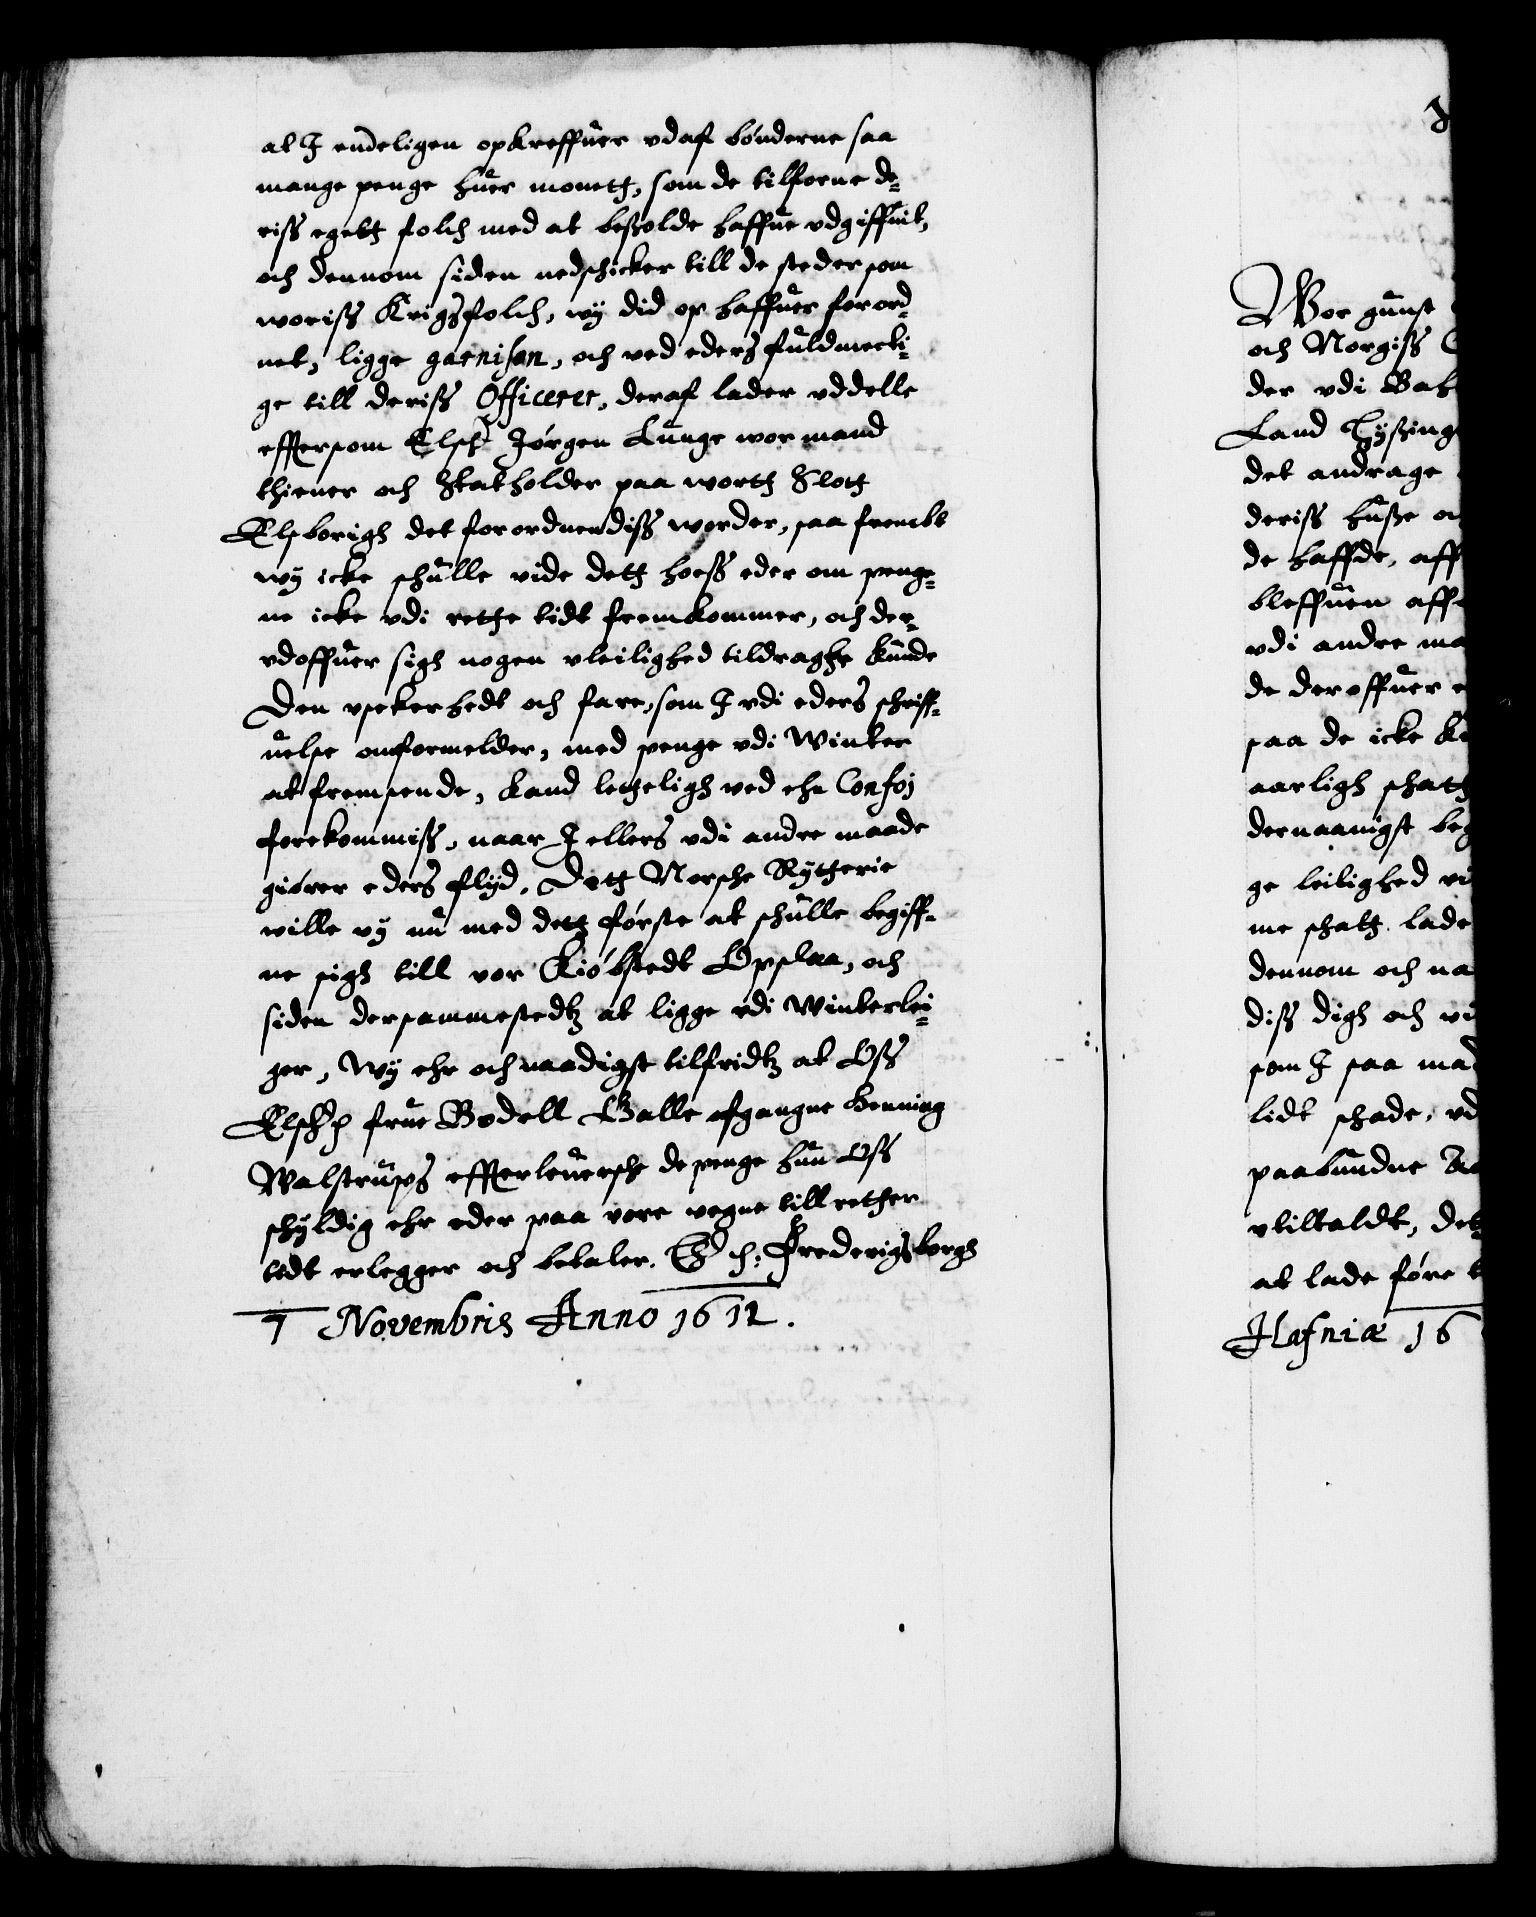 at I endeligen opkreffuer vdaf bønderne saa
mange penge huer monett, som de tilforne de=
riss egett folch med at besolde haffue vdgiffuit,
och dennom siden nedschicker till de steder som
woriss Krigsfolch, wy did op haffuer forord=
net, ligge garnison, och ved eders fuldmecti=
ge till deriss Officerer, deraf lader vddelle
effersom Elsch Jørgen Lunge wor mand
thiener och Statholder paa wortt Slott
Elsborigh det forordnendiss worder, saa fremt
wy icke schulle vide dett hoess eder om penge=
ne icke vdi rette tidt fremkommer, och der=
vdoffuer sigh nogen vleilighed tildraghe kunde
Den vsekerhedt och fare, som I vdi eders schriff=
uelse omformelder, med penge vdi Winter
at fremsende, kand letteligh ved ehn Confoj
forekommiss, naar I ellers vdi andre maade
giører eders flijd, Dett Norsche Rytterie
wille vy nu med dett første at schulle begiff=
ue sigh till vor Kiøbstedt Opslaa, och
siden dersammestedtz at ligge vdi Winterlei=
ger, Wy ehr och naadigst tilfridtz at Oss
Elsch: frue Bodell Balle afgangne Henning
Walstrups effterleuersche de penge hun Oss
schyldig ehr eder paa vore vegne till retter
tidt erlegger och betaler. Frederigsborgh
7 Novembris Anno 1612.
Wor gunst
och Norgiss
der vdi Bah
Land Hyssing
det andrage
deriss husse oc
de haffde, aff
bleffuen aff
vdi andre ma
de deroffuer e
saa de icke K
aarligh schatt
dernaanigst beg
ge leilighed vi
me schatt lade
dennom och na
diss digh och vi
som I saa mad
lidt schade, vd
paabundne A
vtiltaldt, det
at lade føre t
Hafniæ 16